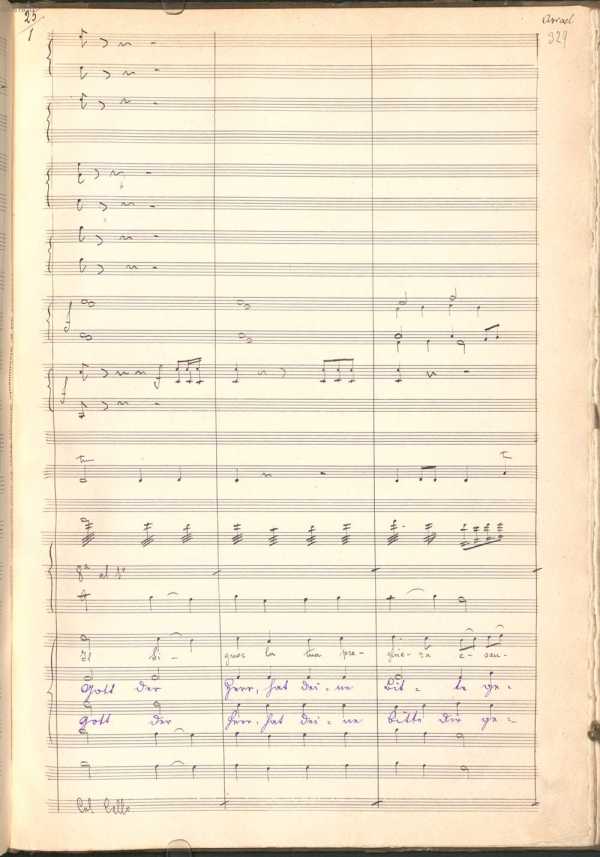 25
1
329
8ª al 1º
Il Si - gnor la tua pre - ghie - ra e - sau -
Gott der Herr, hat dei - ne Bit - te ge -
Gott der Herr, hat dei - ne Bitte dir ge -
Col Cello